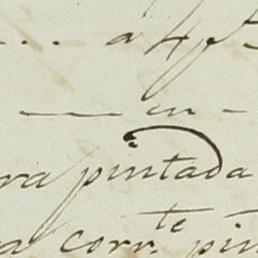 ... a 4 p
— en -
ra pintada
a corr.te pin